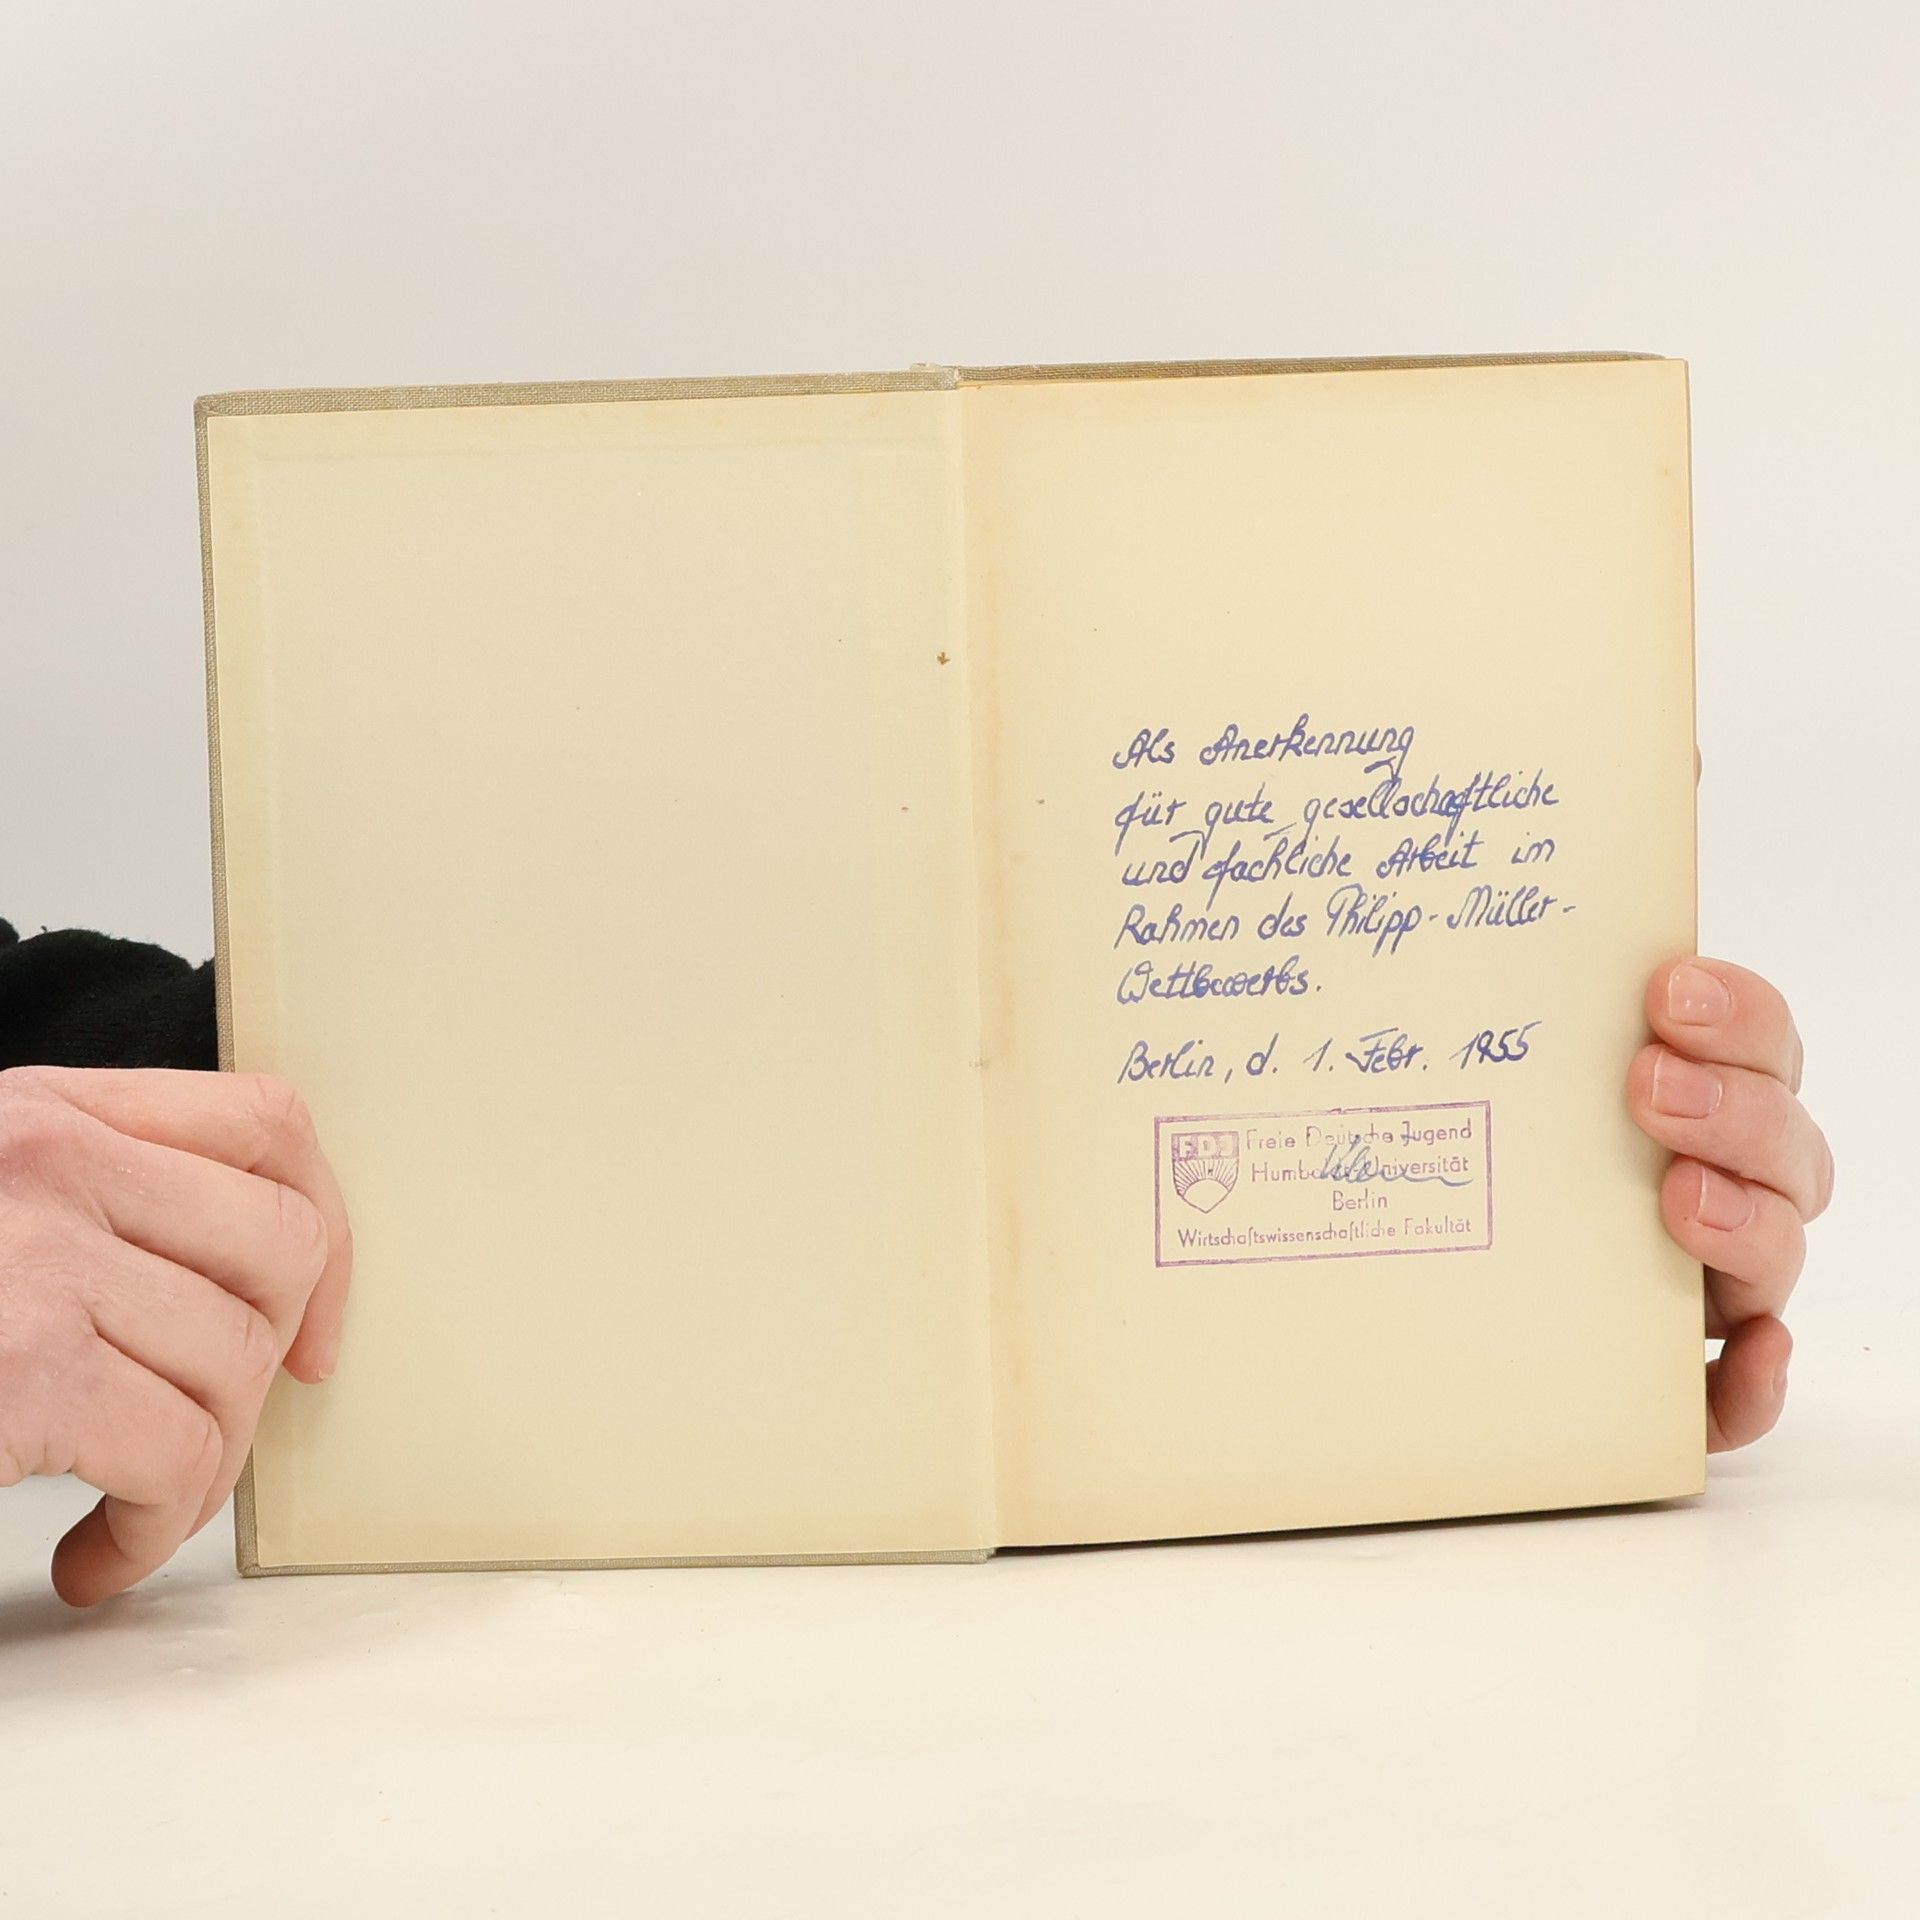 Als Anerkennung
für gute gesellschaftliche
und fachliche Arbeit im
Rahmen des Philipp-Müller-
Wettbewerbs.
Berlin, d. 1. Febr. 1955
FDJ
Freie Deutsche Jugend
Humboldt-Universität
Berlin
Wirtschaftswissenschaftliche Fakultät